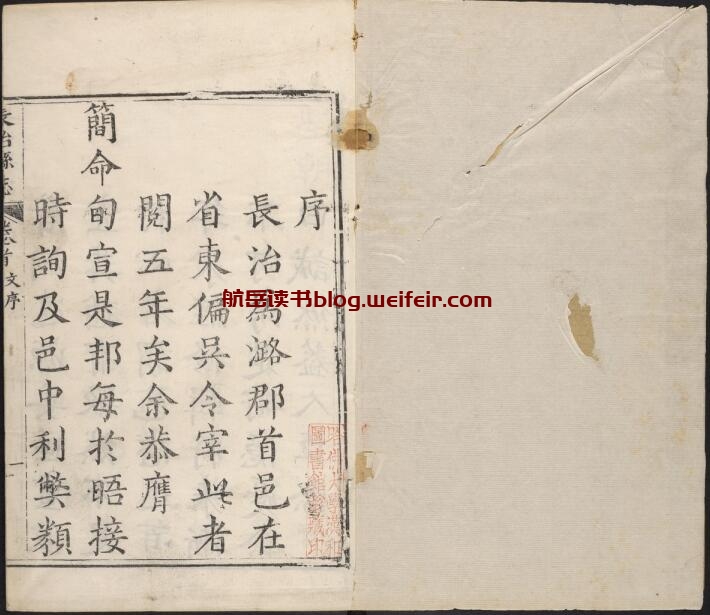 序
長治為潞郡首邑在
省東偏吳令宰此者
閱五年矣余恭膺
簡命旬宣是邦每於晤接
時詢及邑中利弊纇
長治縣志
卷首 文序
一
航星读书blog.weifeir.com
圖書館藏印